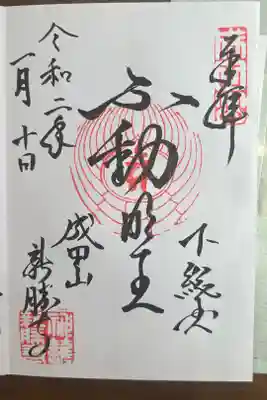 奉拝
下総國
不動明王
成田山
新勝寺
令和二年
一月十日